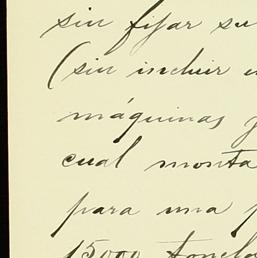 sin fijar su
(sin incluir
máquinas
cual monta
para una
15000 tonela